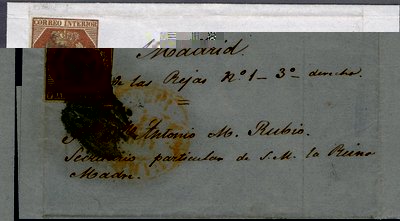 CORREO INTERIOR
Madrid
de las Rejas Nº 1 - 3º derecha.
Antonio M. Rubio.
Secretario particular de S. M. la Reina
Madre.